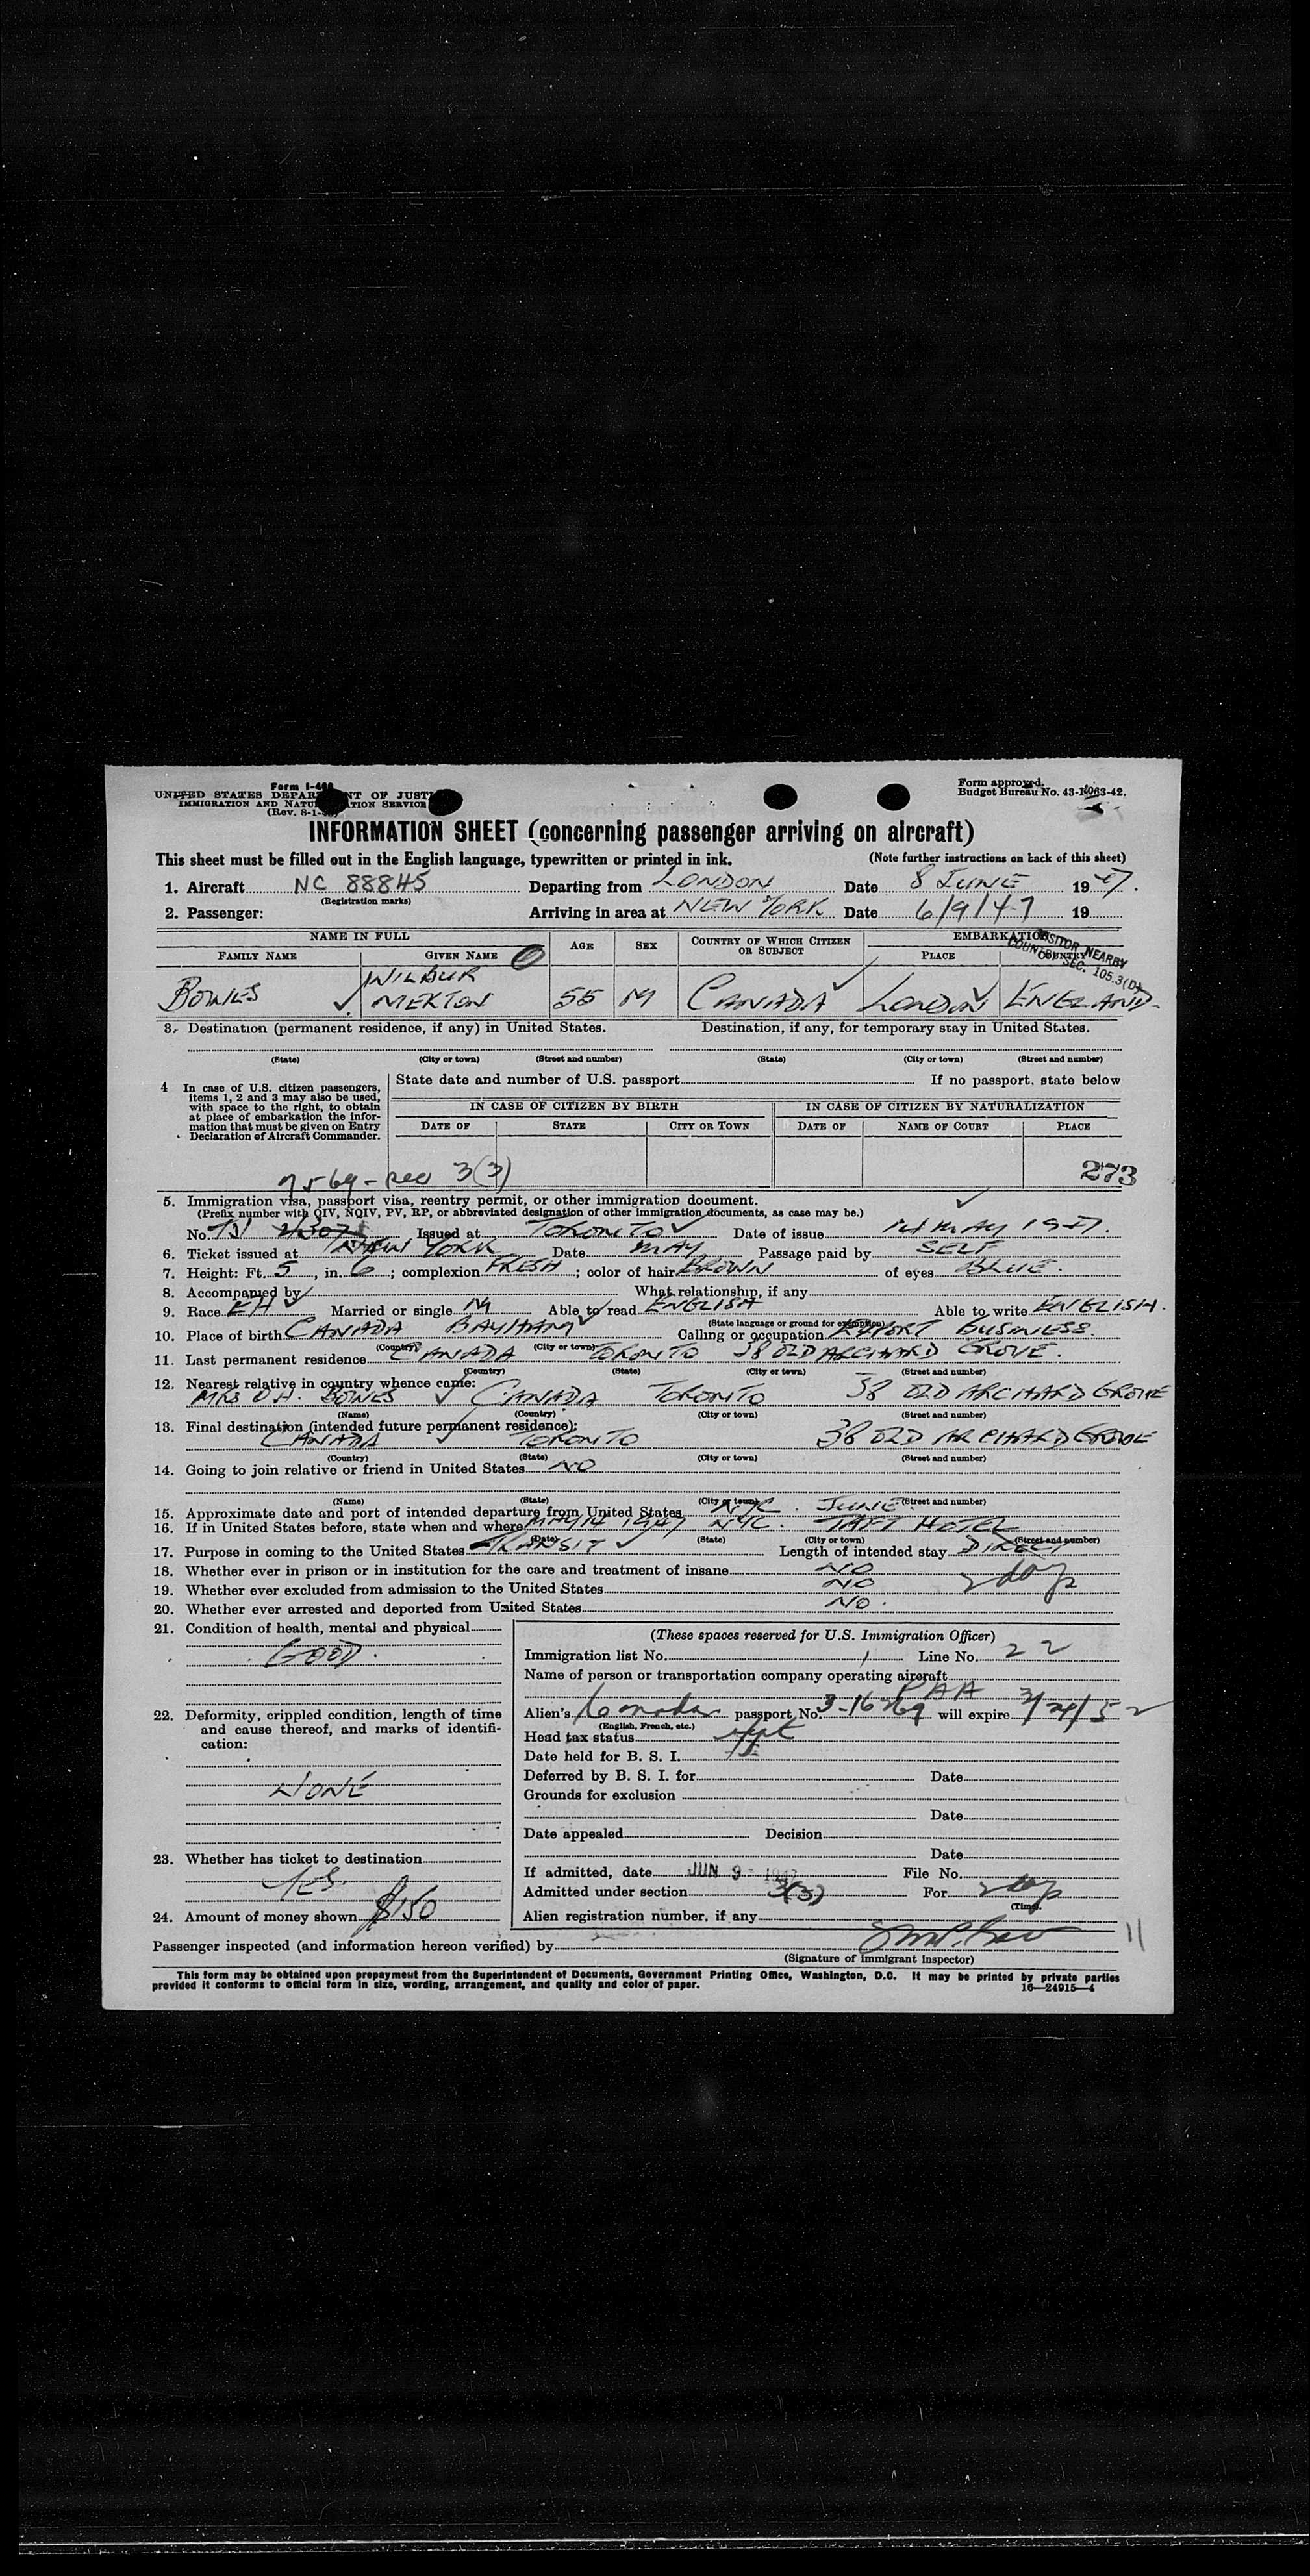 Form I-466
UNITED STATES DEPARTMENT OF JUSTICE
IMMIGRATION AND NATURALIZATION SERVICE
(Rev. 8-1-
Form approved.
Budget Bureau No. 43-R063-42.
INFORMATION SHEET (concerning passenger arriving on aircraft)
This sheet must be filled out in the English language, typewritten or printed in ink. (Note further instructions on back of this sheet)
1. Aircraft NC 88845 Departing from LONDON Date 8 JUNE 1947.
(Registration marks)
2. Passenger: Arriving in area at NEW YORK Date 6/9/47 19
NAME IN FULL AGE SEX COUNTRY OF WHICH CITIZEN OR SUBJECT EMBARKATION
FAMILY NAME GIVEN NAME PLACE COUNTRY
VISITOR NEARBY
COUNTRY SEC. 105.3(D)
BOWLES WILBUR MERTON 55 M CANADA LONDON ENGLAND
3. Destination (permanent residence, if any) in United States. Destination, if any, for temporary stay in United States.
(State) (City or town) (Street and number) (State) (City or town) (Street and number)
4 In case of U.S. citizen passengers, items 1, 2 and 3 may also be used, with space to the right, to obtain at place of embarkation the information that must be given on Entry Declaration of Aircraft Commander.
State date and number of U.S. passport If no passport, state below
IN CASE OF CITIZEN BY BIRTH IN CASE OF CITIZEN BY NATURALIZATION
DATE OF STATE CITY OR TOWN DATE OF NAME OF COURT PLACE
3(3) 273
5. Immigration visa, passport visa, reentry permit, or other immigration document.
(Prefix number with QIV, NQIV, PV, RP, or abbreviated designation of other immigration documents, as case may be.)
No. Issued at TORONTO Date of issue 14 MAY 1947.
6. Ticket issued at NEW YORK Date MAY Passage paid by SELF
7. Height: Ft. 5, in. 6; complexion FRESH; color of hair BROWN of eyes BLUE.
8. Accompanied by What relationship, if any
9. Race Married or single M Able to read ENGLISH Able to write ENGLISH.
(State language or ground for exemption)
10. Place of birth CANADA BAYHAM Calling or occupation EXPORT BUSINESS.
(Country) (City or town)
11. Last permanent residence CANADA TORONTO 38 OLD ARCHARD GROVE.
(Country) (State) (City or town) (Street and number)
12. Nearest relative in country whence came:
MRS O.H. BOWLES CANADA TORONTO 38 OLD ARCHARD GROVE
(Name) (Country) (City or town) (Street and number)
13. Final destination (intended future permanent residence):
CANADA TORONTO 38 OLD ARCHARD GROVE
(Country) (State) (City or town) (Street and number)
14. Going to join relative or friend in United States NO
(Name) (State) (City or town) (Street and number)
15. Approximate date and port of intended departure from United States NYC. JUNE
16. If in United States before, state when and where MAY 14 1947 NYC. TAFT HOTEL
(Date) (State) (City or town) (Street and number)
17. Purpose in coming to the United States TRANSIT Length of intended stay DIRECT
18. Whether ever in prison or in institution for the care and treatment of insane NO 2 days
19. Whether ever excluded from admission to the United States NO
20. Whether ever arrested and deported from United States NO.
21. Condition of health, mental and physical
GOOD.
22. Deformity, crippled condition, length of time and cause thereof, and marks of identification:
NONE
23. Whether has ticket to destination
YES.
24. Amount of money shown $150
(These spaces reserved for U.S. Immigration Officer)
Immigration list No. 1 Line No. 22
Name of person or transportation company operating aircraft
PAA
Alien's Canadian passport No. 3-16269 will expire 3/24/52
(English, French, etc.)
Head tax status
Date held for B. S. I.
Deferred by B. S. I. for Date
Grounds for exclusion
Date
Date appealed Decision
Date
If admitted, date JUN 9 1947 File No.
Admitted under section 3(3) For 2 days
(Time)
Alien registration number, if any
Passenger inspected (and information hereon verified) by
(Signature of immigrant inspector)
This form may be obtained upon prepayment from the Superintendent of Documents, Government Printing Office, Washington, D.C. It may be printed by private parties
provided it conforms to official form in size, wording, arrangement, and quality and color of paper. 16—24915—4